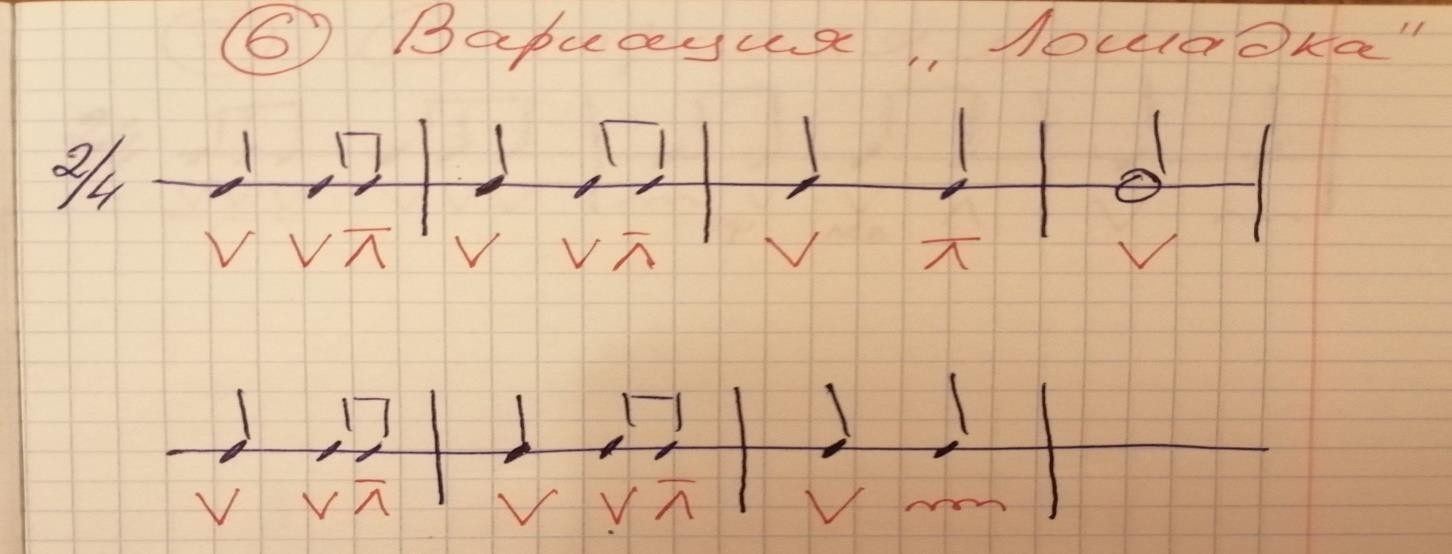 6 Вариация „Лошадка"
2/4
V V V V V V
V V V V V